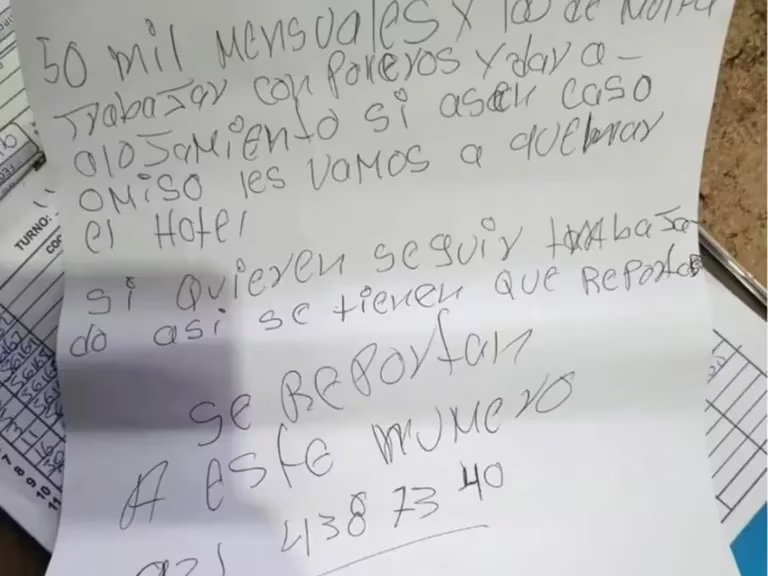 50 mil mensuales y
Trabajar con Poleros y dar a-
olojamiento si asen caso
omiso les vamos a quebrar
el Hotel
si quieren seguir trabaja-
do asi se tienen que Reportar
se Reportan
A este numero
438 73 40
TURNO:
7
8
9
10
11